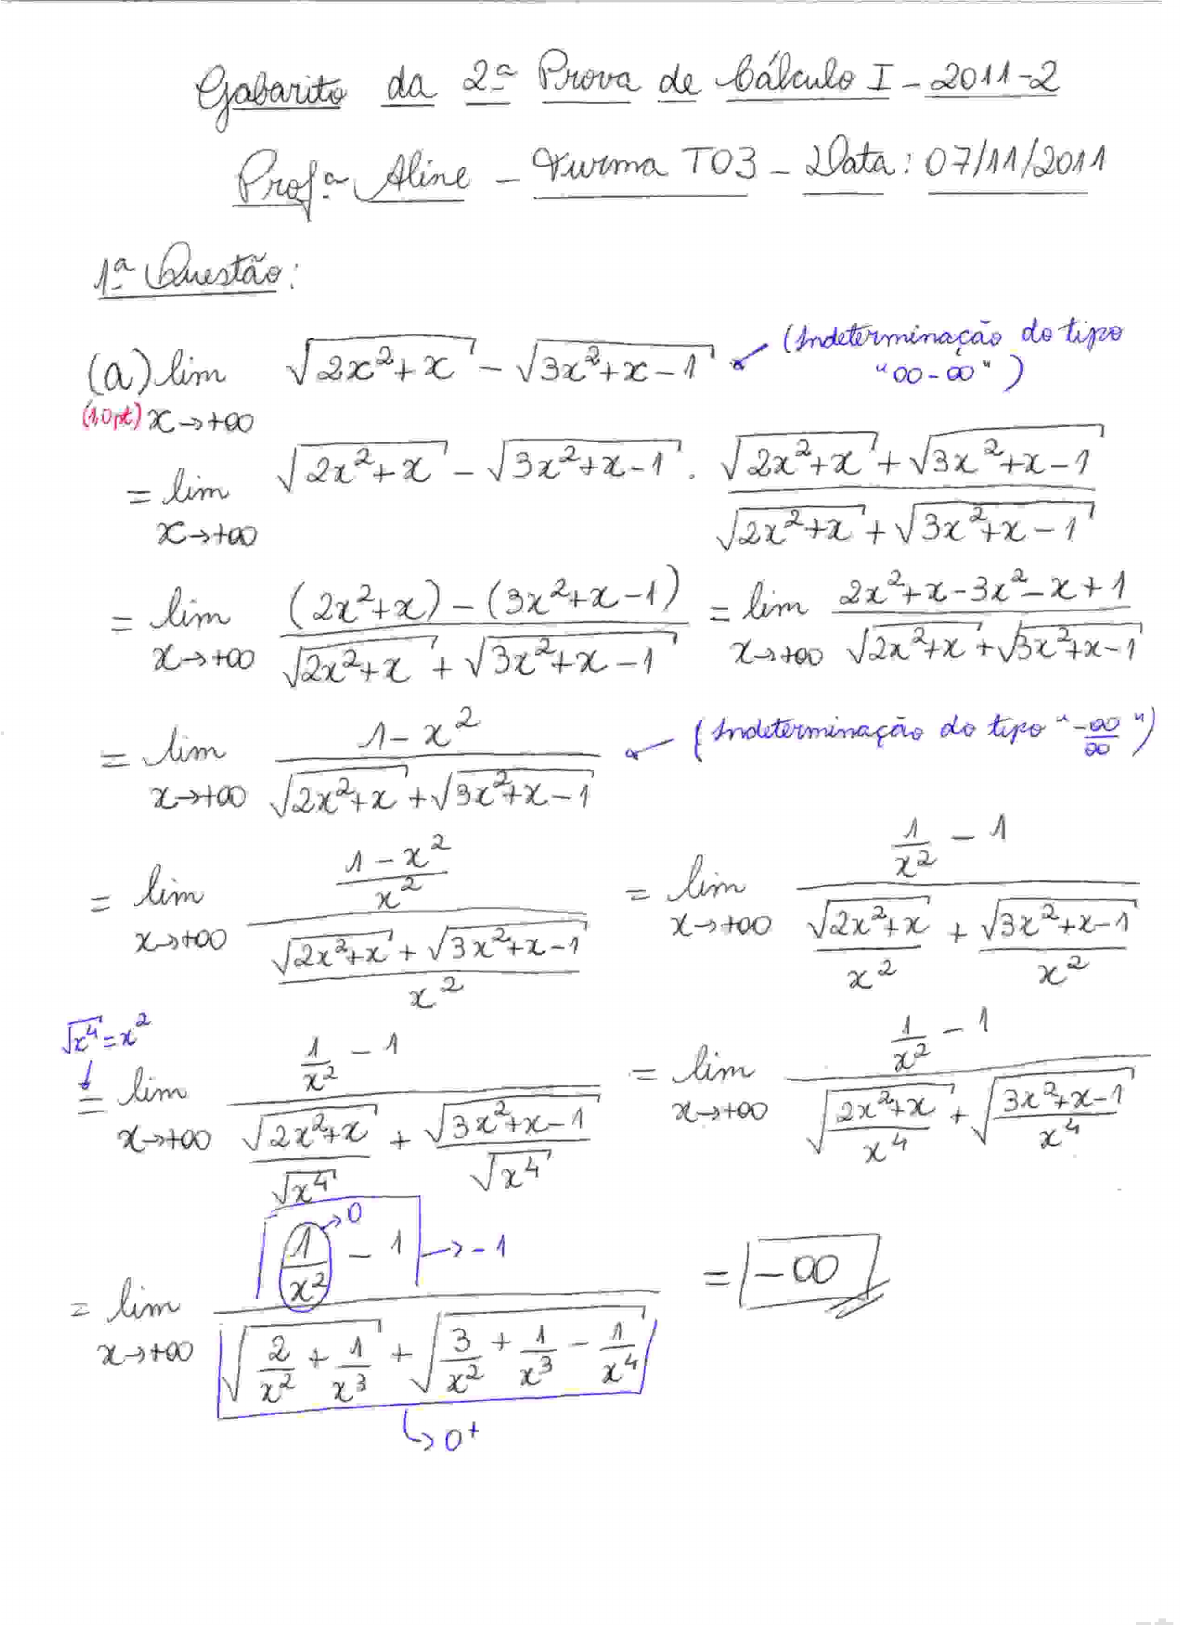 Gabarito da 2ª Prova de Cálculo I - 2011-2
Profª Aline - Turma T03 - Data: 07/11/2011
1ª Questão:
(a) lim x→+∞ √(2x²+x) - √(3x²+x-1) (Indeterminação do tipo "∞-∞")
(1,0pt)
= lim x→+∞ √(2x²+x) - √(3x²+x-1) · (√(2x²+x) + √(3x²+x-1)) / (√(2x²+x) + √(3x²+x-1))
= lim x→+∞ ((2x²+x) - (3x²+x-1)) / (√(2x²+x) + √(3x²+x-1)) = lim x→+∞ (2x²+x-3x²-x+1) / (√(2x²+x) + √(3x²+x-1))
= lim x→+∞ (1-x²) / (√(2x²+x) + √(3x²+x-1)) (Indeterminação do tipo "-∞/∞")
= lim x→+∞ ((1-x²)/x²) / ((√(2x²+x) + √(3x²+x-1))/x²) = lim x→+∞ (1/x² - 1) / (√(2x²+x)/x² + √(3x²+x-1)/x²)
√x⁴ = x²
↓
= lim x→+∞ (1/x² - 1) / (√(2x²+x)/√x⁴ + √(3x²+x-1)/√x⁴) = lim x→+∞ (1/x² - 1) / (√((2x²+x)/x⁴) + √((3x²+x-1)/x⁴))
→0
→-1
= lim x→+∞ (1/x² - 1) / (√(2/x² + 1/x³) + √(3/x² + 1/x³ - 1/x⁴)) = -∞
→0⁺